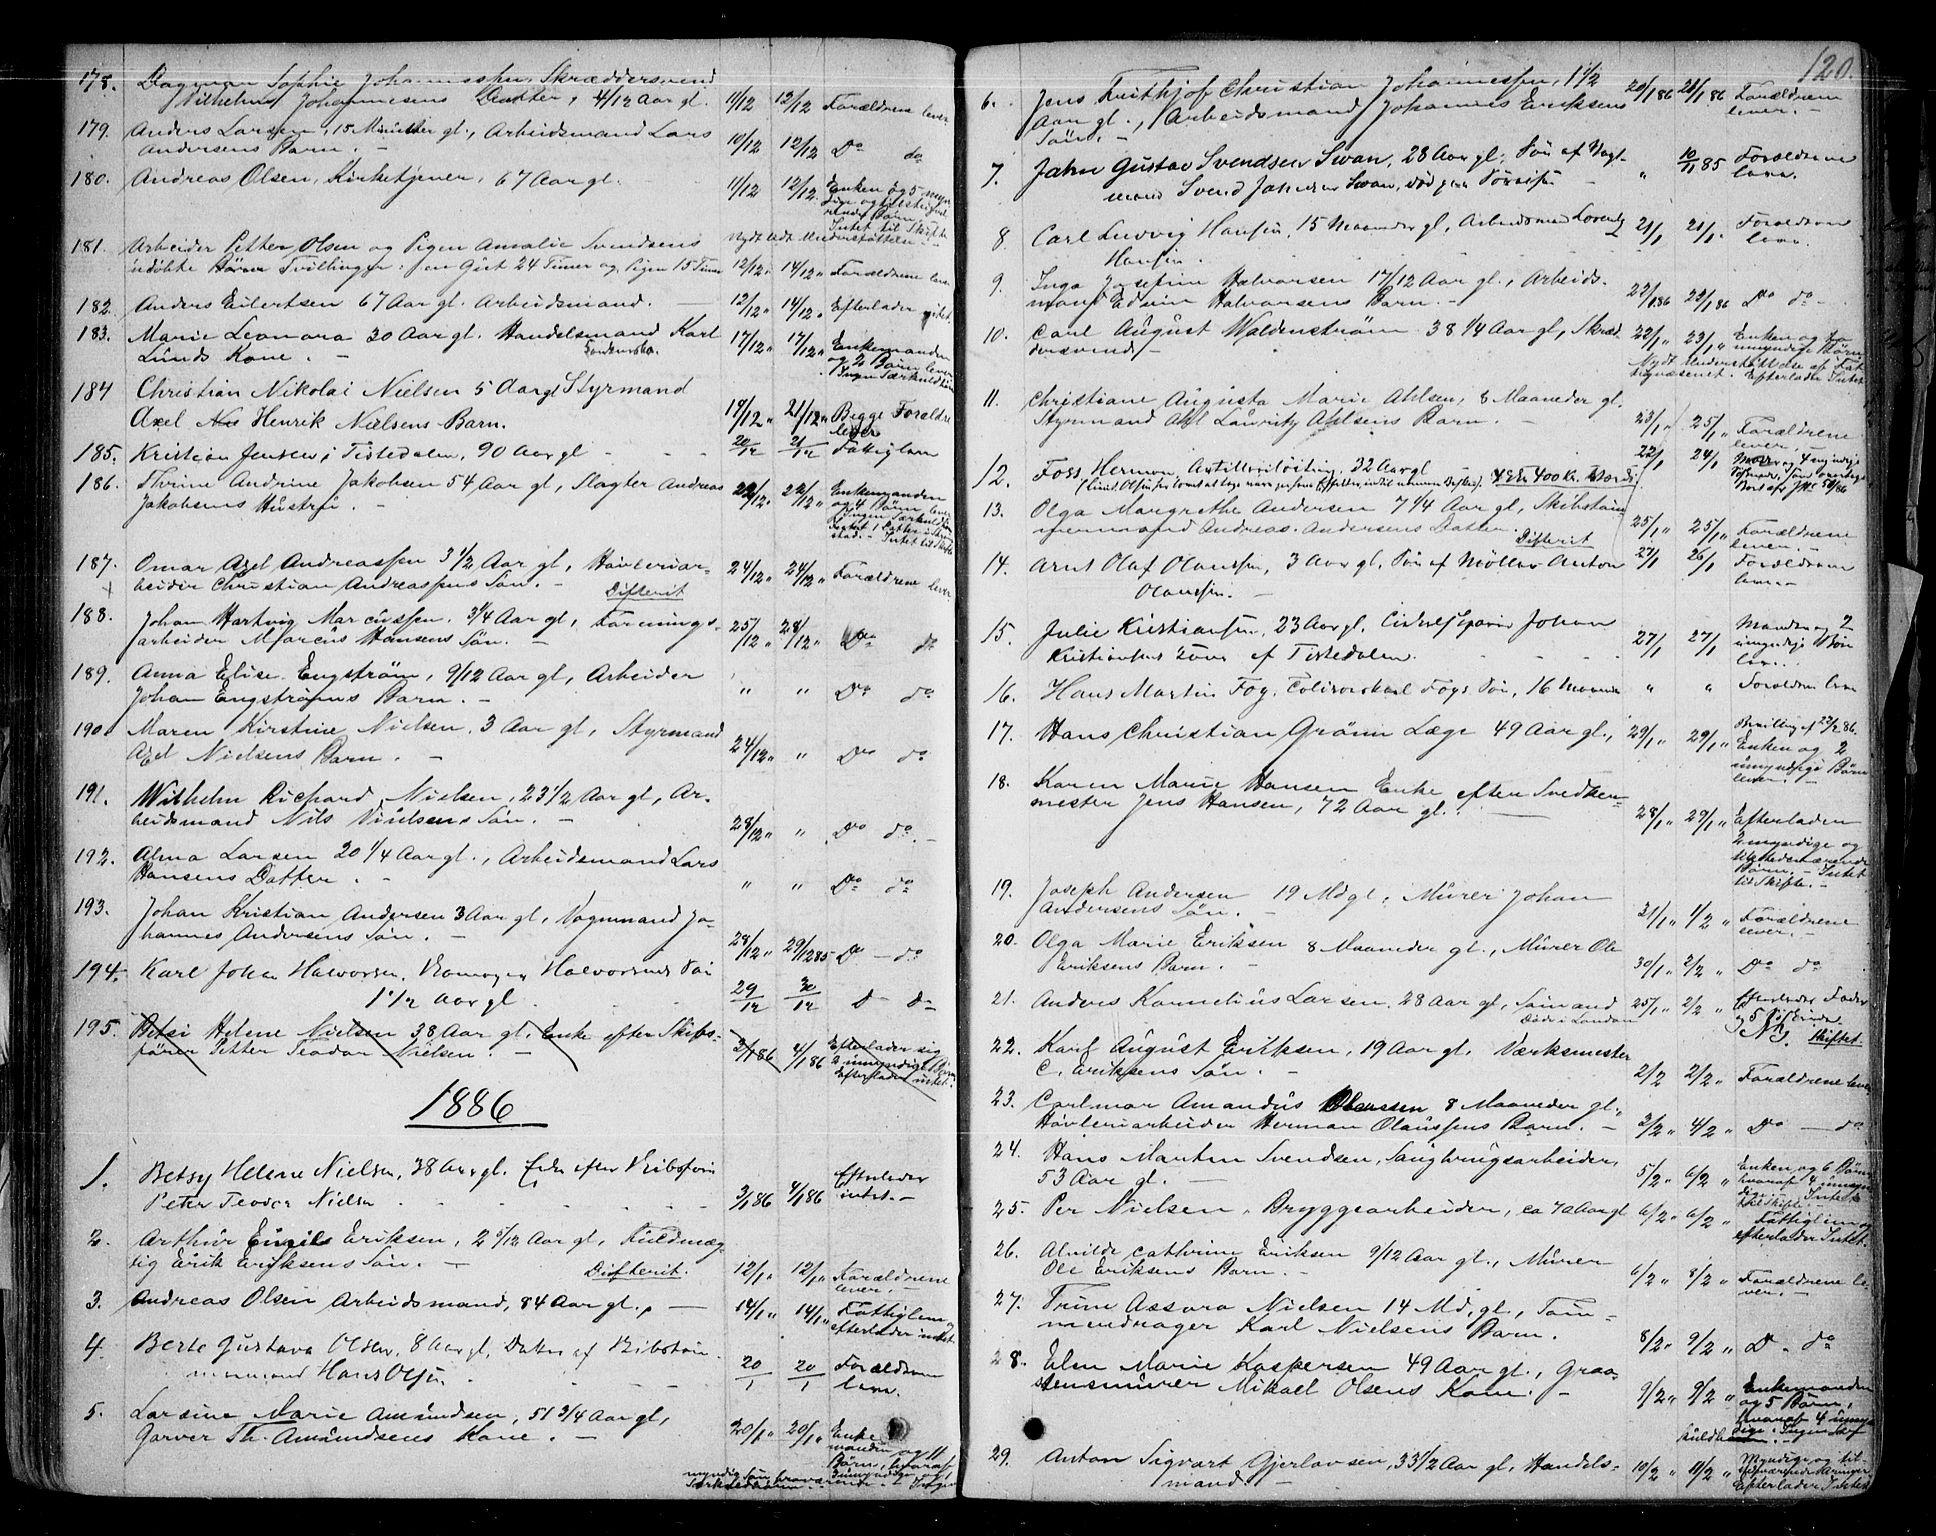 120.
178. Dagmar Sophie Johannessen, Skræddersvend
Vilhelm Johannesens Datter, 4/12 Aar gl. 11/12 12/12 Forældrene lever
179. Anders Larsen, 15 Minutter gl., Arbeidsmand Lars
Andersens Barn. - 10/12 12/12 Do do
180. Andreas Olsen, Kirketjener, 67 Aar gl. 11/12 12/12 Enken og 5 myn
dige og tilstedevæ
rende Børn,
Intet til Skifte
Nydt Understøttelse
181. Arbeider Petter Olsen og Pigen Amalie Svendsens
udøbte Børn Tvillinger, en Gut 24 Timer og Pigen 15 Timer 12/12 " 14/12 " Forældrene lever
182. Anders Eilertsen 67 Aar gl. Arbeidsmand. 12/12 " 14/12 " Efterlader intet.
183. Marie Leonora 30 Aar gl. Handelsmand Karl
Lunds Kone. - 17/12 " 17/12 " Enkemanden
og 2 Børn lever
Ingen Særkuldbørn
184 Christian Nikolai Nielsen 5 Aar gl Styrmand
Axel Henrik Nielsens Barn. 19/12 " 21/12 " Begge Forældre
lever
185. Kristian Jensen, Tistedalen, 90 Aar gl - - 20/12 21/12 Fattiglem
186. Thrine Andrine Jakobsen 54 Aar gl, Slagter Andreas
Jakobsens Hustru 22/12 " 22/12 " Enkemanden
og 4 Børn lever
Ingen Særkuldbørn
Intet til Skifte
187. Omar Axel Andreassen 3 1/2 Aar gl, Høvleriar-
beider Christian Andreassens Søn. - Difterit 24/12 " 24/12 " Forældrene lever
188. Johan Hartvig Marcussen. 3/4 Aar gl, Formings-
arbeider Marcus Hansens Søn. - 25/12 " 28/12 " Do do
189. Anna Elise Engstrøm, 9/12 Aar gl, Arbeider
Johan Engstrøms Barn. - " " Do do
190. Maren Kirstine Nielsen, 3 Aar gl, Styrmand
Axel Nielsens Barn. - 24/12 " " Do do
191. Wilhelm Richard Nielsen, 23 1/2 Aar gl, Ar-
beidsmand Nils Nielsens Søn. - 28/12 " " Do do. -
192. Alma Larsen 20 1/4 Aar gl., Arbeidsmand Lars
Hansens Datter. - " " Do do
193. Johan Kristian Andersen 3 Aar gl, Vognmand Jo-
hannes Andersens Søn. - 28/12 " 29/12 85 Do - do
194. Karl Johan Halvorsen, Halvorsens Søn
1 1/2 Aar gl. 29/12 30/12 D- Do
195. Betsi Helene Nielsen 38 Aar gl, Enke efter Skibs-
fører Petter Teodor Nielsen. - 3/1 86 4/1 86 Efterlader sig
2 umyndige Børn
Efterlader intet.
1886
1. Betsy Helene Nielsen, 38 Aar gl. Enke efter Skibsfører
Peter Teodor Nielsen 3/1 86 4/1 86 Efterlader
intet. -
2. Arthur Engels Eriksen, 2 5/12 Aar gl, Fuldmæg-
tig Erik Eriksens Søn. - Difterit. 12/1 " 12/1 " Forældrene
lever. -
3. Andreas Olsen Arbeidsmand, 84 Aar gl., - 14/1 " 14/1 " Fattiglem og
efterlader intet.
4. Berte Gustava Olsen, 8 Aar gl, Datter af Skibstøm-
mermand Hans Olsen. 20/1 20/1 Forældrene
lever.
5. Larsine Marie Amundsen, 51 3/4 Aar gl,
Garver Th. Amundsens Kone. - 20/1 " 20/1 " Enke
manden og 11
Børn, hvoraf
3 umyndige og 1
myndig Søn fraværende. - Ingen
Særkuldbørn. -
6. Jens Frithjof Christian Johannessen, 1 1/2
Aar gl., Arbeidsmand Johannes Eriksens
Søn. - 20/1 86 21/1 86 Forældrene
lever. -
7. John Gustav Svendsen Svan, 28 Aar gl, Søn af Vogt-
mand Svend Johnsen Svan, død paa " 10/11 85 Forældrene
leve.
8. Carl Ludvig Hansen, 15 Maaneder gl, Arbeidsmand Lorentz
Hansen. 21/1 21/1. Forældrene
leve.
9. Inga Josefine Halvorsen 17/12 Aar gl., Arbeids-
mand Edvin Halvorsens Barn. - 22/1 86 23/1 86 Do do -
10. Carl August Waldenstrøm 38 1/4 Aar gl, Skræd
dersvend - 22/1 " 23/1 " Enken og to
umyndige Børn
Nydt Understøttelse af Fat-
tigvæsenet. Efterlader Intet
11. Christiane Augusta Marie Ahlsen, 8 Maaneder gl.
Styrmand Axl Lauritz Ahlsens Barn. - 23/1 " 25/1 " Forældrene
lever
12. Foss Herman, Artilleriløitnant. 32 Aar gl 22/1 24/1
13. Olga Margrethe Andersen 7 1/4 Aar gl, Skibstøm
mermand Andreas Andersens Datter. Difterit 25/1 " 25/1 " Forældrene
lever. -
14. Arnt Olaf Olaussen, 3 Aar gl. Søn af Møller Anton
Olaussen. - 27/1 26/1 Forældrene
leve. -
15. Julie Kristiansen, 23 Aar gl, Johan
Kristiansens Kone af Tistedalen. 27/1 27/1 Manden og 2
umyndige Børn
lever.
16. Hans Martin Fog, Fogs Søn, 16 Maaneder " " Forældrene leve
17. Hans Christian Grønn Læge 49 Aar gl., 29/1 " 29/1 " Bevilling af 23/2 86.
Enken og 2
umyndige Børn
lever. -
18. Karen Marie Hansen Enke efter Snedker-
mester Jens Hansen, 72 Aar gl. - 28/1 " 29/1 " Efterladen
2 myndige og
tilstedeværende
Børn, - Intet
til Skifte. -
19. Joseph Andersen 19 Md gl, Murer Johan
Andersens Søn. - 31/1 " 1/2 " Forældrene
lever. -
20. Olga Marie Eriksen 8 Maaneder gl., Murer Ole
Eriksens Barn. - 30/1 " 2/2 " Do do
21. Anders Kornelius Larsen. 28 Aar gl, Sømand
Døde i London 25/1 " 2/2 " Efterlader Fader
og 5 Sødskende.
Skiftet.
22. Karl August Eriksen, 19 Aar gl. Værksmester
C. Eriksens Søn. - 2/2 2/2 " Forældrene lever
23. Carlmar Amandus Olaussen 8 Maaneder gl.,
Høvleriarbeider Herman Olaussens Barn. - 3/2 " 4/2 " Do - do
24. Hans Morten Svendsen, Saugbrugsarbeider,
53 Aar gl. - 5/2 " 6/2 " Enken og 6 Børn
hvoraf 4 umyn
dige. - Intet
til Skifte. -
25. Per Nielsen, Bryggearbeider, ca 70 Aar gl 6/2 " 6/2 " Fattiglem og
efterlader Intet. -
26. Alvilde Cathrine Eriksen 9/12 Aar gl., Murer
Ole Eriksens Barn. - 6/2 " 8/2 " Forældrene le-
ver. -
27. Trine Aasora Nielsen 14 Md, gl., Tøm-
mendrager Karl Nielsens Barn. 8/2 " 9/2 " D. do
28. Elen Marie Kaspersen 49 Aar gl., Graa-
stensmurer Mikael Olsens Kone. - 9/2 " 9/2 " Enkemanden
og 5 Børn,
hvoraf 4 umyn
dige. Ingen Sær
kuldbørn. -
29. Anton Sigvart Gjerlavsen, 33 1/2 Aar gl, Handels-
mand. - 10/2 " 11/2 " Myndige og til-
stedeværende Arvinger
Efterlader Intet